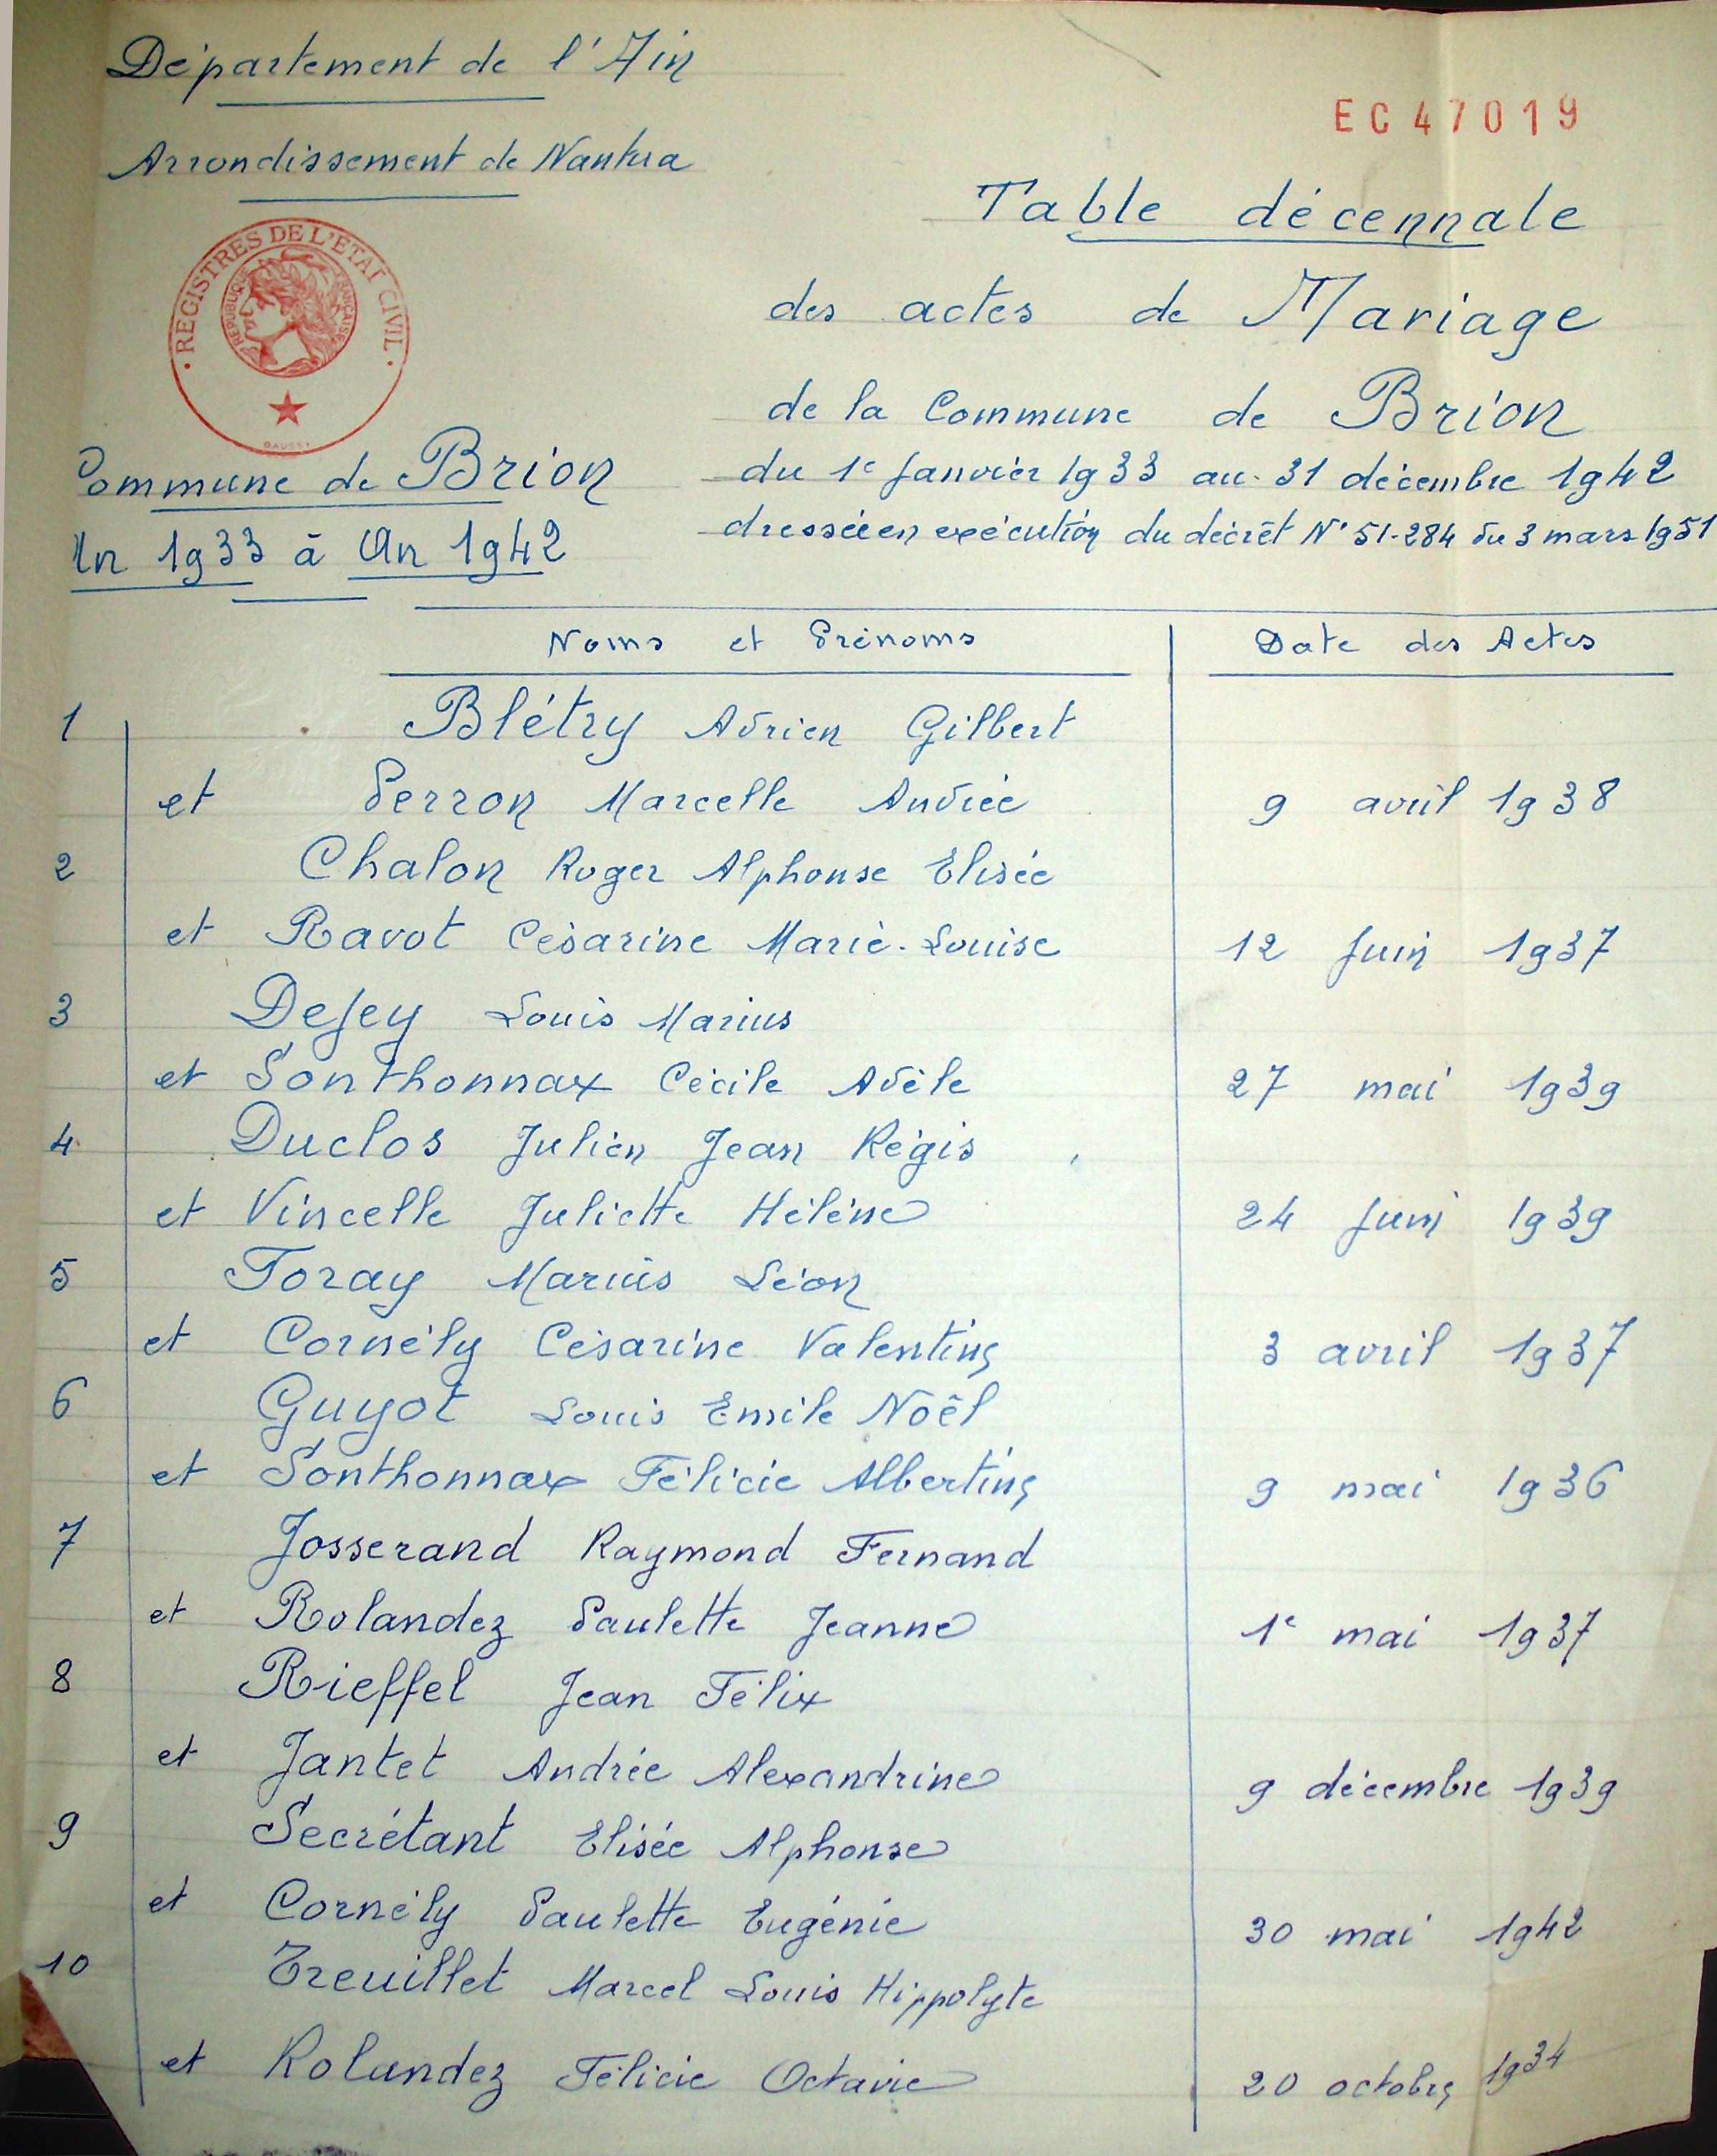 Département de l'Ain
EC47019
Arrondissement de Nantua
Table décennale
REGISTRES DE L'ETAT CIVIL
REPUBLIQUE FRANÇAISE
des actes de Mariage
de la Commune de Brion
Commune de Brion
du 1e Janvier 1933 au 31 décembre 1942
An 1933 à An 1942
dressée en exécution du décrêt N° 51-284 du 3 mars 1951
Noms et Prénoms Date des Actes
1 Blétry Adrien Gilbert
et Perron Marcelle Andrée 9 avril 1938
2 Chalon Roger Alphonse Elisée
et Ravot Césarine Marie-Louise 12 Juin 1937
3 Dejey Louis Marius
et Sonthonnax Cécile Adèle 27 mai 1939
4 Duclos Julien Jean Régis
et Vincelle Juliette Hélène 24 Juin 1939
5 Foray Marius Léon
et Cornély Césarine Valentine 3 avril 1937
6 Guyot Louis Emile Noël
et Sonthonnax Félicie Albertine 9 mai 1936
7 Josserand Raymond Fernand
et Rolandez Paulette Jeanne 1e mai 1937
8 Rieffel Jean Félix
et Jantet Andrée Alexandrine 9 décembre 1939
9 Secrétant Elisée Alphonse
et Cornély Paulette Eugénie 30 mai 1942
10 Treuillet Marcel Louis Hippolyte
et Rolandez Félicie Octavie 20 octobre 1934